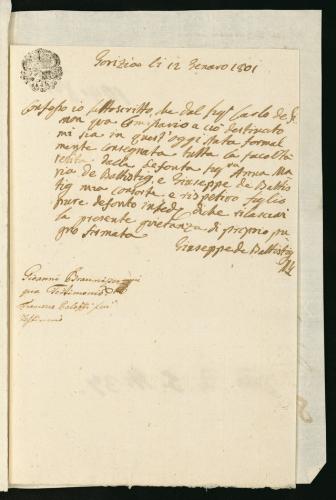 Gorizia li 12 Genaro 1801
Confesso io sottoscritto, che dal Sigr Carlo de Si-
mon qua Comissario a ciò destinato
mi sia in quest'oggi stata formal
mente consegnata tutta la facoltà
relita dalla defonta Sigra Anna Ma
ria de Battistig, e Giuseppe de Battis
tig mia consorte e rispetivo figlio
pure defonto in fede di che rilasciai
la presente quietanza di proprio pu
gno firmata
Giuseppe de Battistig
Gioanni
qua Testimonio
Francesco
Testimonio